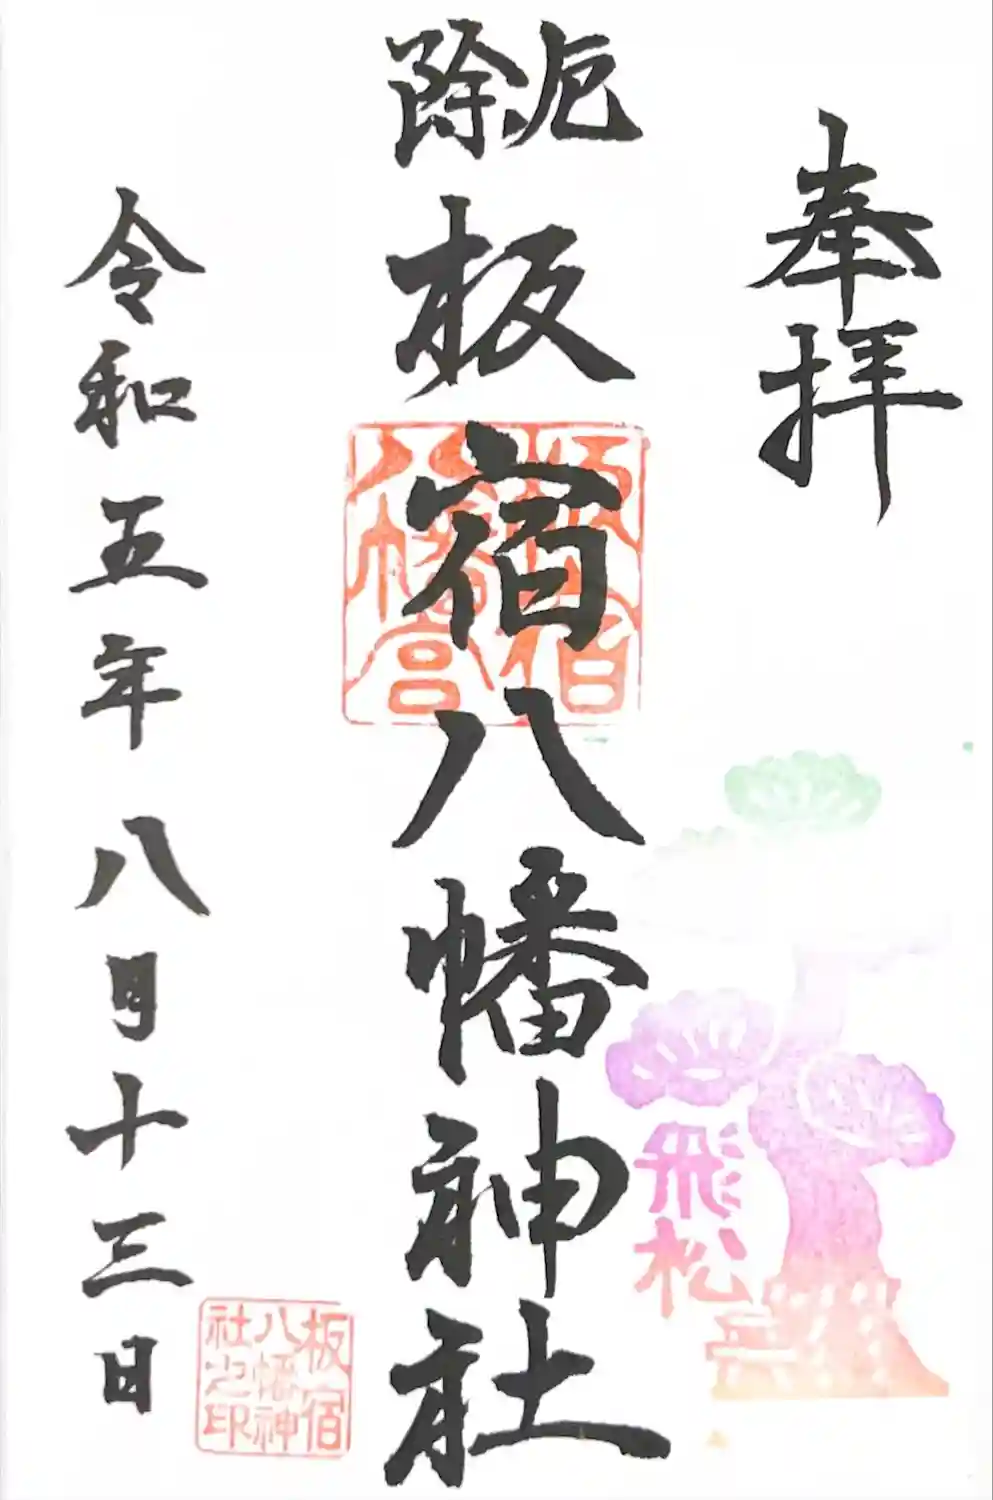 奉拝
厄除
板宿八幡神社
板宿八幡宮
飛松
令和五年八月十三日
板宿八幡神社之印